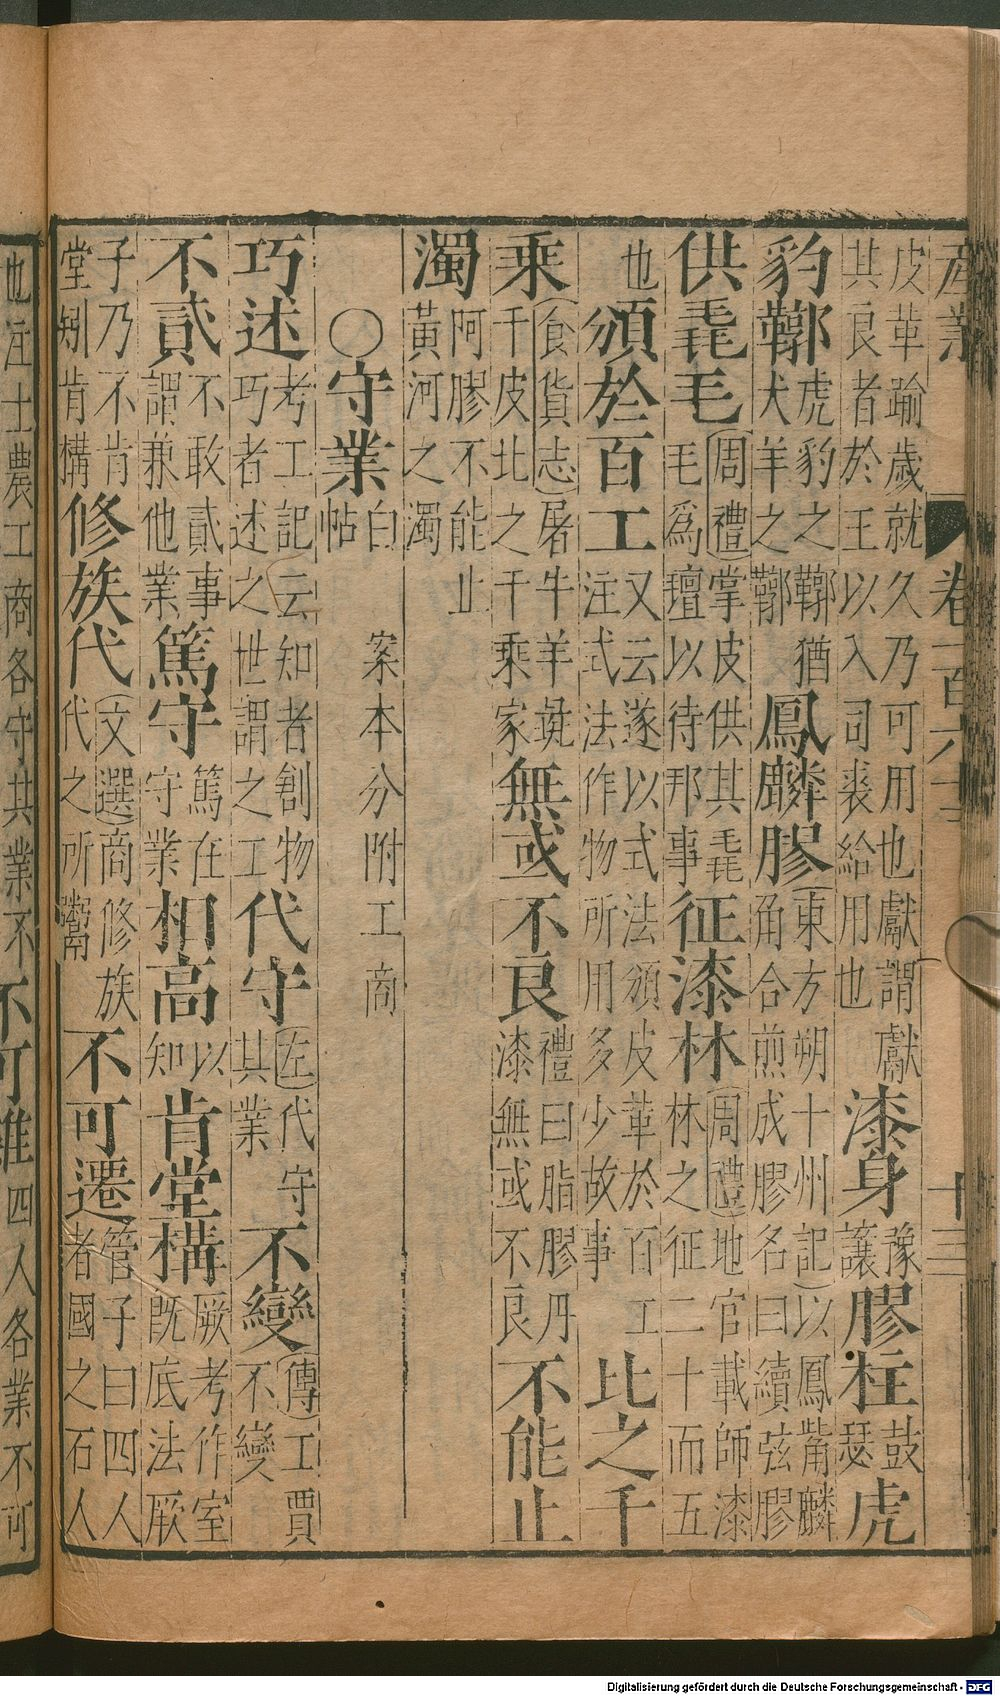 產業 卷一百六 十三
皮革踰歲就久乃可用也獻謂獻其良者於王以入司裘給用也漆身豫讓膠柱鼓瑟虎
豹鞹虎豹之鞹猶犬羊之鞹鳳麟膠東方朔十州記以鳳觜麟角合煎成膠名曰續弦膠
供毳毛周禮掌皮供其毳毛爲氊以待邦事征漆林周禮地官載師漆林之征二十而五
也頒於百工又云遂以式法頒皮革於百工注式法作物所用多少故事比之千
乘食貨志屠牛羊彘千皮北之千乘家無或不良禮曰脂膠丹漆無或不良不能止
濁阿膠不能止黃河之濁
○守業白帖 案本分附工商
巧述考工記云知者創物巧者述之世謂之工代守左代守其業不變傳工賈不變
不貳不敢貳事謂兼他業篤守篤在守業相高以知肯堂構厥考作室既底法厥
子乃不肯堂矧肯構修族代文選商修族代之所鬻不可遷管子曰四人者國之石人
也注士農工商各守其業不不可雜四人各業不可
Digitalisierung gefördert durch die Deutsche Forschungsgemeinschaft - DFG